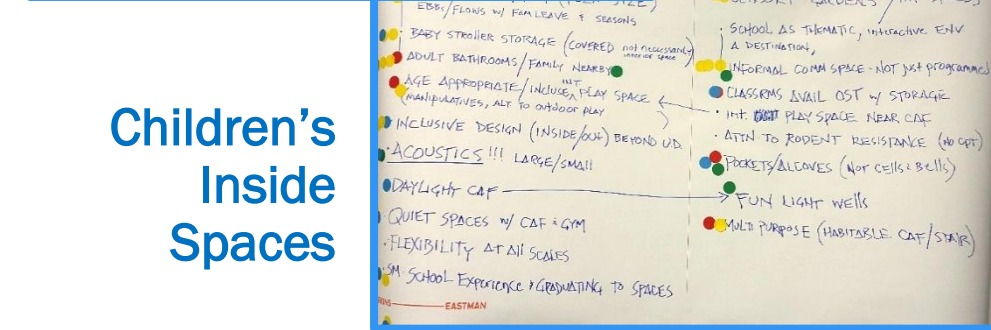 Children's
Inside
Spaces
EBBS/FLOWS W/ FAM LEAVE & SEASONS
· BABY STROLLER STORAGE (COVERED not necessarily
interior space
ADULT BATHROOMS/FAMILY NEARBY
INT.
AGE APPROPRIATE/INCLUSE, PLAY SPACE
(MANIPULATIVES, ALT TO OUTDOOR PLAY
INCLUSIVE DESIGN (INSIDE/OUT) BEYOND U.D.
· ACOUSTICS!!! LARGE/SMALL
DAYLIGHT CAF
· QUIET SPACES W/ CAF & GYM
· FLEXIBILITY AT All SCALES
· SM. SCHOOL Experience & GRADUATING TO SPACES
EASTMAN
· SCHOOL AS THEMATIC, interactive ENV
A DESTINATION,
INFORMAL COMM SPACE - NOT just programmed
CLASSRMS AVAIL OST W/ STORAGE
· INT. PLAY SPACE NEAR CAF
· ATTN TO RODENT RESISTANCE (NO CPT)
POCKETS/ALCOVES (NOT CELLS & BELLS)
FUN LIGHT WELLS
MULTI PURPOSE (HABITABLE CAF/STAIR)